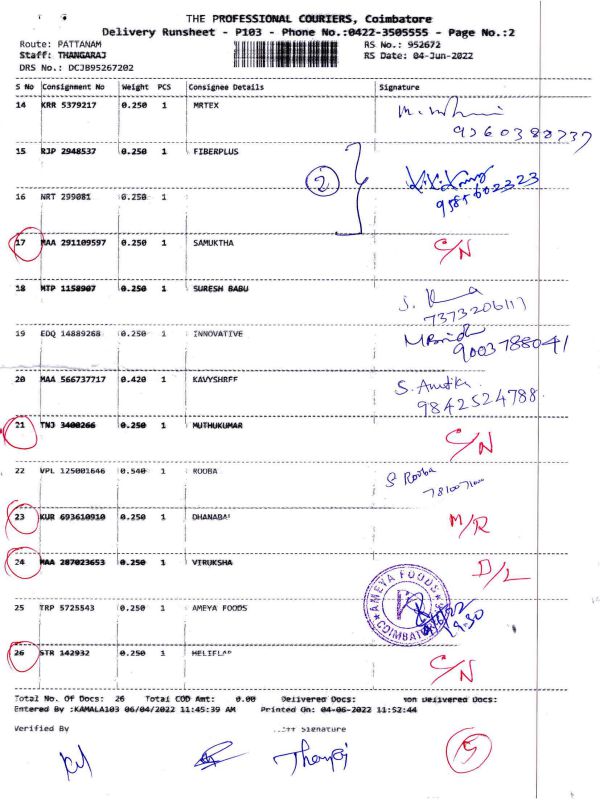 THE PROFESSIONAL COURIERS, Coimbatore
Delivery Runsheet - P103 - Phone No.:0422-3505555 - Page No.:2
Route: PATTANAM RS No.: 952672
Staff: THANGARAJ RS Date: 04-Jun-2022
DRS No.: DCJB95267202
S No Consignment No Weight PCS Consignee Details Signature
14 KRR 5379217 0.250 1 MRTEX
9260388737
15 RJP 2948537 0.250 1 FIBERPLUS
2
9585602323
16 NRT 299081 0.250 1
17 MAA 291109597 0.250 1 SAMUKTHA C/N
18 MTP 1158907 0.250 1 SURESH BABU
7373206117
19 EDQ 14889268 0.250 1 INNOVATIVE
9003788041
20 MAA 566737717 0.420 1 KAVYSHREE
9842524788
21 TNJ 3400266 0.250 1 MUTHUKUMAR C/N
22 VPL 125001646 0.540 1 ROOBA S Rooba
23 KUR 693610910 0.250 1 DHANABA M/R
24 MAA 287023653 0.250 1 VIRUKSHA D/L
AMEYA FOODS
COIMBATORE
25 TRP 5725543 0.250 1 AMEYA FOODS
26 STR 142932 0.250 1 HELIFLAP C/N
Total No. Of Docs: 26 Total COD Amt: 0.00 Delivered Docs: Non Delivered Docs:
Entered By :KAMALA103 06/04/2022 11:45:39 AM Printed On: 04-06-2022 11:52:44
Verified By Signature
5